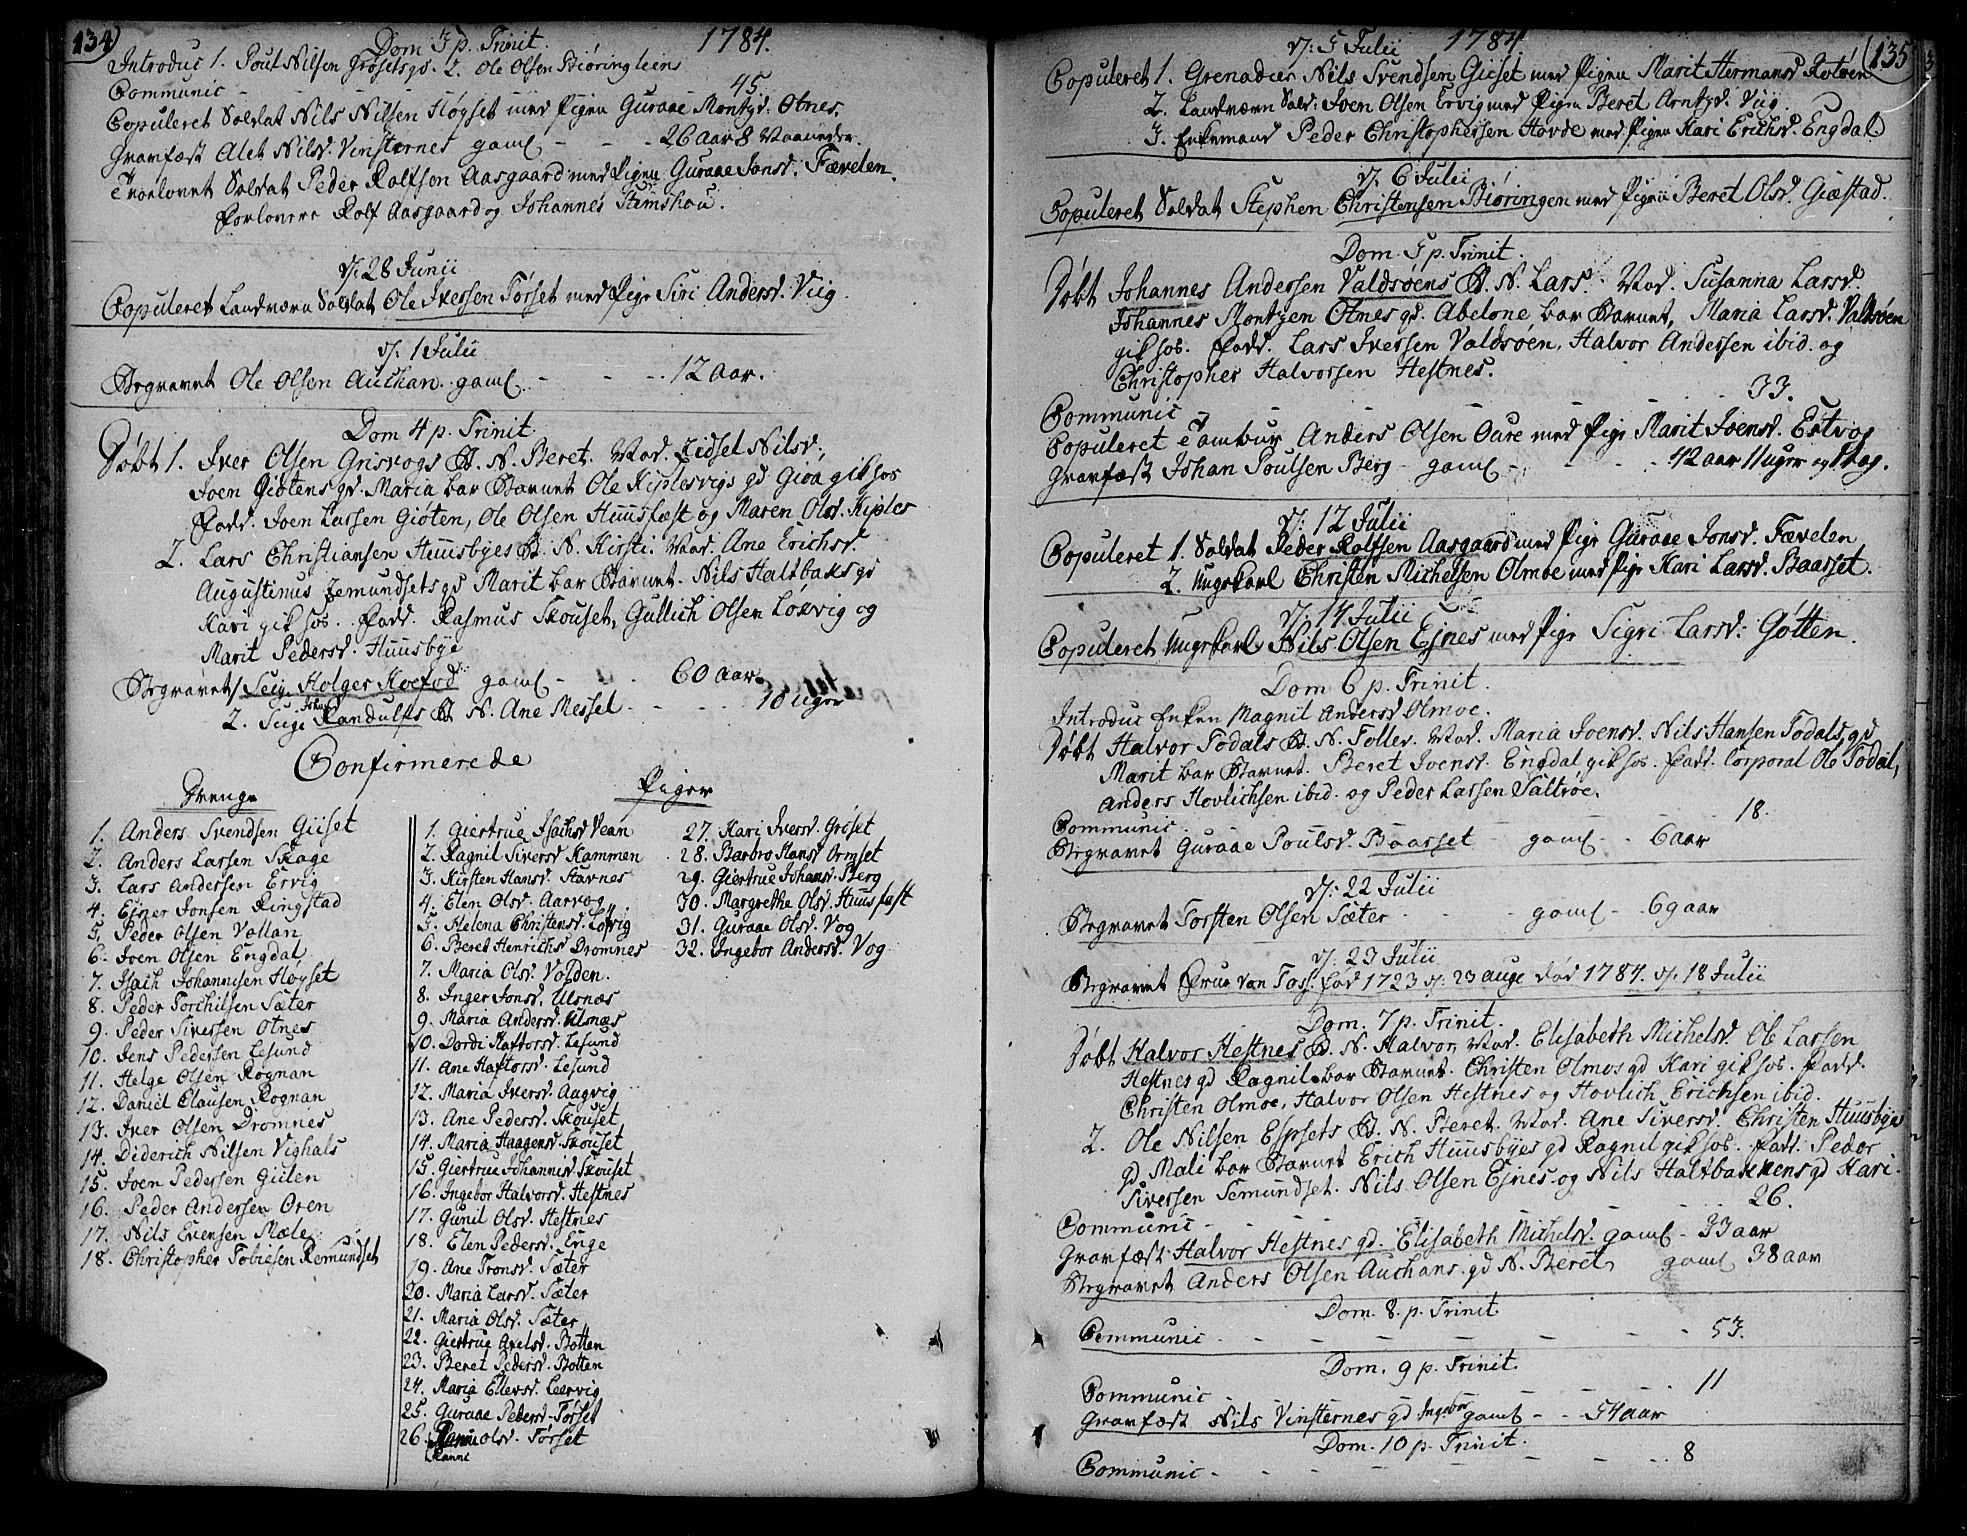 134
Dom 3 p. Trinit. 1784.
Introduc 1. Poul Nilsen Grøsets gd. 2. Ole Olsen Biøringleien
Communic - - - 45.
Copuleret Soldat Nils Nilsen Høyset med Pigen Guraae Montzd. Otnes.
Gravfæst Alet Nilsd. Vinsternes gaml - - - 26 Aar 8 Maaneder.
Troelovet Soldat Peder Rolfsen Aasgaard med Pigen Guraae Jonsd. Fævelen.
Forlovere Rolf Aasgaard og Johannes Stemshou.
d: 28 Junii
Copuleret Landværn Soldat Ole Iversen Tørset med Pige Siri Andersd. Viig.
d: 1 Julii
Begravet Ole Olsen Auchan gaml - - - 12 Aar.
Dom 4 p. Trinit.
Døbt 1. Iver Olsen Grisvogs B. N. Beret. Mod. Zidsel Nilsd.,
Joen Giøtens gd. Maria bar Barnet Ole Kiplesvigs gd Gioa gik hos
Fadd. Joen Larsen Giøten, Ole Olsen Huusfæst og Maren Olsd. Kiples
2. Lars Christiansen Huusbyes B. N. Kirsti. Mod. Ane Erichsd.
Augustinus Semundsets gd Marit bar Barnet. Nils Haltbaks gd
Kari gik hos. Fadd. Rasmus Skouset, Gullich Olsen Løxvig og
Marit Pedersd. Huusbye
Begravet 1 Seig. Holger Koefod gaml - - - 60 Aar
2. Seig. Johan Randulfs B. N. Ane Messel - - - 10 Uger
Confirmerede
Drenge
1. Anders Svendsen Giiset
2. Anders Larsen Skage
3. Lars Andersen Ervig
4. Ejner Jonsen Ringstad
5. Peder Olsen Vollan
6. Joen Olsen Engdal
7. Isach Johannesen Høyset
8. Peder Torchilsen Sæter
9. Peder Sivertsen Otnes
10. Jens Pedersen Lesund
11. Helge Olsen Rognan
12. Daniel Clausen Rognan
13. Iver Olsen Dromnes
14. Diderich Nilsen Vighals
15. Joen Pedersen Giilen
16. Peder Andersen Oren
17. Nils Evensen Mæle
18. Christopher Tobiesen Remundset
Piger
1. Giertrue Isachsd Vean
2. Ragnil Siversd Kammen
3. Kirsten Hansd. Stavnes
4. Elen Olsd. Aarvog
5. Helena Christensd. Løfvig
6. Beret Henrichsd Dromnes
7. Maria Olsd. Volden.
8. Inger Jonsd. Ulsnæs
9. Maria Andersd. Ulsnæs
10. Dordi Haftorsd. Lesund
11. Ane Haftorsd. Lesund
12. Maria Iversd. Augvig
13. Ane Pedersd. Skouset
14. Maria Haagensd. Skouset
15. Giertrue Johannisd. Skouset
16. Ingebor Halvorsd. Hestnes
17. Gunil Olsd. Hestnes
18. Elen Pedersd. Enge
19. Ane Tronsd. Sæter
20. Maria Larsd. Sæter
21. Maria Olsd. Sæter
22. Giertrue Axelsd. Botten
23. Beret Pedersd. Botten
24. Maria Ellevsd. Leervig
25. Guraae Pedersd. Tørset
26. Olsd. Tørset
Ranne
27. Kari Iversd. Grøset
28. Barbro Hansd Ormset
29. Giertrue Johansd. Berg
30. Margrethe Olsd. Huusfast
31. Guraae Olsd. Vog
32. Ingebor Andersd. Vog
135
d: 5 Julii 1784
Copuleret 1. Grenadeer Nils Svendsen Giiset med Pigen Marit Hermansd Rotøen
2. Landværn Sold: Joen Olsen Ervig med Pigen Beret Arntzd. Viig.
3. Enkemand Peder Christophersen Hovde med Pigen Kari Erichsd. Engdal.
d: 6 Julii
Copuleret Soldat Stephen Christensen Biøringen med Pigen Beret Olsd. Giæstad.
Dom. 5 p. Trinit.
Døbt Johannes Andersen Valdsøens B. N. Lars. Mod. Susanna Larsd.
Johannes Montzen Otnes gd. Abelone bar Barnet, Maria Larsd. Valdsøen
gik hos. Fadd. Lars Iversen Valdsøen, Halvor Andersen ibid. og
Christopher Halvorsen Hestnes.
Communic - - - 33.
Copuleret Tambur Anders Olsen Oure med Pige Marit Joensd. Estvog
Gravfæst Johan Poulsen Berg - gaml - - - 42 aar 11 uger og 1 Dag.
d: 12 Julii
Copuleret 1. Soldat Peder Rolfsen Aasgaard med Pige Guraae Jonsd. Fævelen
2. Ungekarl Christen Michelsen Olmoe med Pige Kari Larsd. Baasset.
d: 14 Julii
Copuleret Ungekarl Nils Olsen Ejnes med Pige Sigri Larsd: Gøtten.
Dom 6 p. Trinit.
Introduc Enken Magnil Andersd Olmoe.
Døbt Halvor Todals B. N. Tolle. Mod. Maria Joensd. Nils Hansen Todals gd
Marit bar Barnet. Beret Ivensd. Engdal gik hos. Fadd. Corporal Ole Todal,
Anders Hovlichsen ibid. og Peder Larsen Saltrøe.
Communic. 18.
Begravet Guraae Poulsd. Baasset gaml - - 6 Aar
d: 22 Julii
Begravet Torsten Olsen Sæter - - - gaml - 69 aar
d: 23 Julii
Begravet Frue von Tass. fød 1723 d: 23 aug død 1784. d: 18 Julii
Dom. 7 p. Trinit.
Døbt Halvor Hestnes B. N. Halvor, Mod. Elisabeth Michelsd. Ole Larsen
Hestnes gd Ragnil bar Barnet. Christen Olmos gd Kari gik hos. Fadd.
Christen Olmoe, Halvor Olsen Hestnes og Hovlich Erichsen ibid.
2. Ole Nilsen Espsets B. N. Beret. Mod. Ane Siversd. Christen Huusbyes
gd Mali bar Barnet Erich Huusbyes gd Ragnil gik hos. Fadd. Peder
Siversen Semundset. Nils Olsen Ejnes og Nils Haltbakkens gd Kari.
Communic - - - 26.
Gravfæst Halvor Hestnes gd. Elisabeth Michelsd. gaml - 33 aar
Begravet Anders Olsen Auchans gd N. Beret, gaml 38 aar
Dom. 8. p. Trinit.
Communic - - - 53.
Dom. 9 p. Trinit.
Communic - - - 11
Gravfæst Nils Vinsternes gd Ingebor gaml - - 54 aar
Dom. 10 p. Trinit.
Communic - - - 8